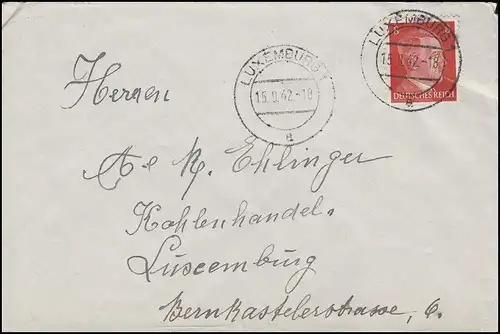 LUXEMBURG 1
15.9.42-18
a
LUXEMBURG 1
15.9.42-18
a
8
DEUTSCHES REICH
Herren
A & R. Ehlinger
Kohlenhandel.
Luxemburg
Bernkastelerstrasse, 6.